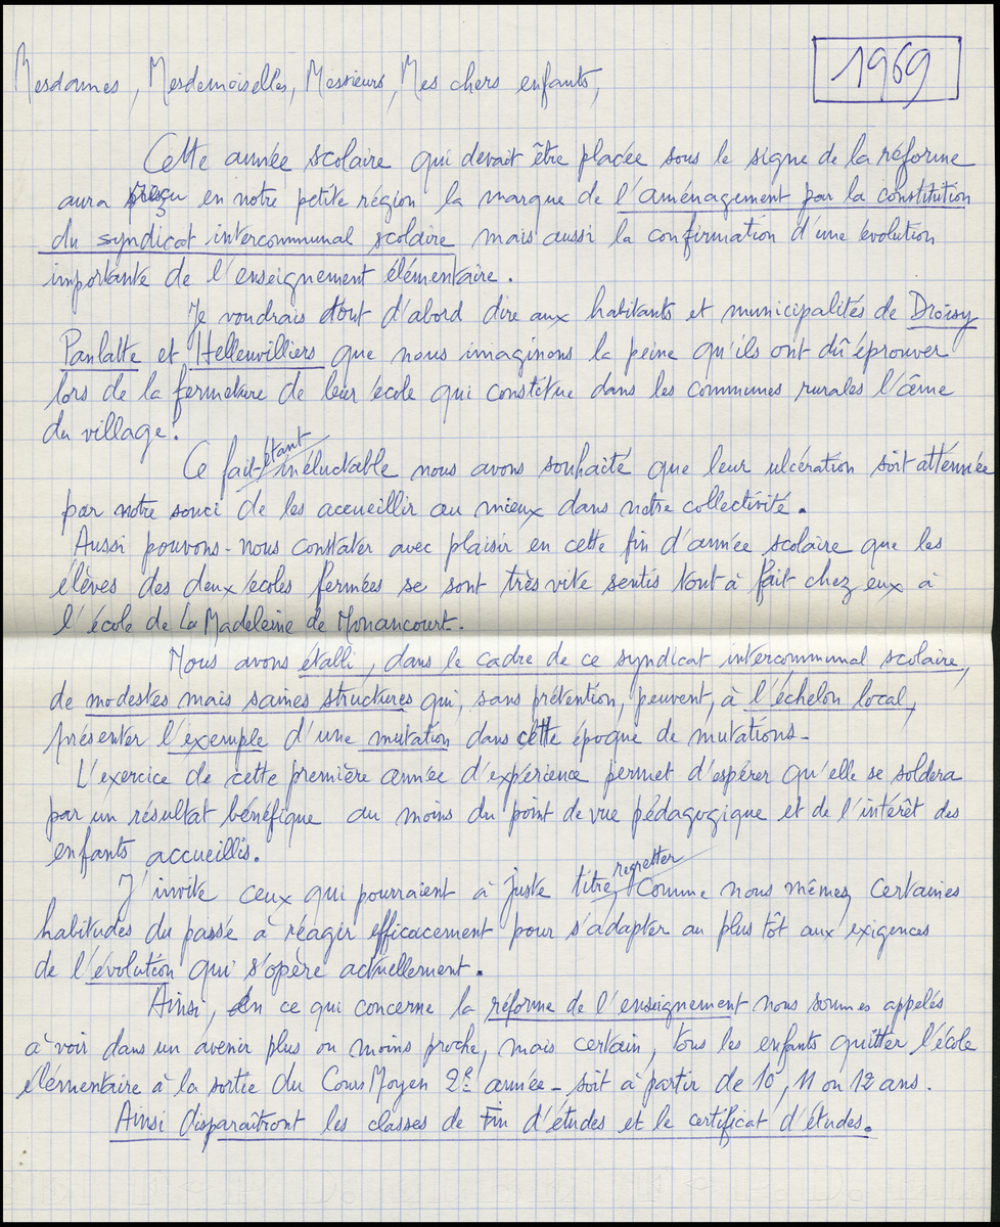 1969
Mesdames, Mesdemoiselles, Messieurs, Mes chers enfants,
Cette année scolaire qui devait être placée sous le signe de la réforme
aura reçu en notre petite région la marque de l'aménagement par la constitution
du syndicat intercommunal scolaire mais aussi la confirmation d'une évolution
importante de l'enseignement élémentaire.
Je voudrais tout d'abord dire aux habitants et municipalités de Droisy
Panlatte et Hellenvilliers que nous imaginons la peine qu'ils ont dû éprouver
lors de la fermeture de leur école qui constitue dans les communes rurales l'âme
du village.
Ce fait étant inéluctable nous avons souhaité que leur ulcération soit atténuée
par notre souci de les accueillir au mieux dans notre collectivité.
Aussi pouvons-nous constater avec plaisir en cette fin d'année scolaire que les
élèves des deux écoles fermées se sont très vite sentis tout à fait chez eux à
l'école de La Madeleine de Nonancourt.
Nous avons établi, dans le cadre de ce syndicat intercommunal scolaire,
de modestes mais saines structures qui, sans prétention, peuvent, à l'échelon local,
présenter l'exemple d'une mutation dans cette époque de mutations-
L'exercice de cette première année d'expérience permet d'espérer qu'elle se soldera
par un résultat bénéfique au moins du point de vue pédagogique et de l'intérêt des
enfants accueillis.
J'invite ceux qui pourraient à juste titre, regretter comme nous mêmes, certaines
habitudes du passé à réagir efficacement pour s'adapter au plus tôt aux exigences
de l'évolution qui s'opère actuellement.
Ainsi, en ce qui concerne la réforme de l'enseignement nous sommes appelés
à voir dans un avenir plus ou moins proche, mais certain, tous les enfants quitter l'école
élémentaire à la sortie du Cours Moyen 2e année - soit à partir de 10, 11 ou 12 ans.
Ainsi disparaîtront les classes de Fin d'études et le certificat d'études.